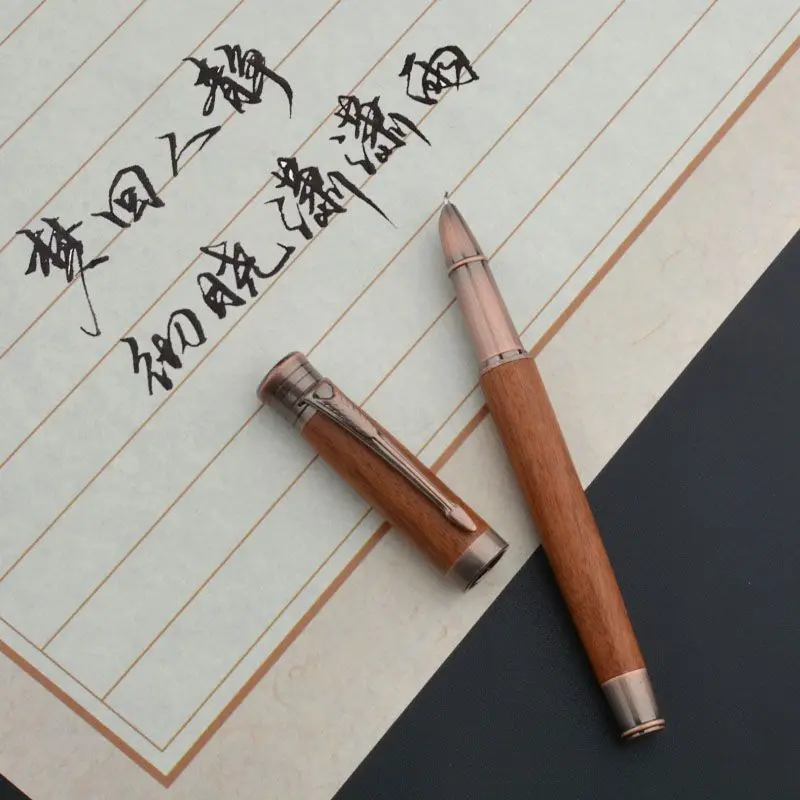 梦回人静
彻晓潇潇雨